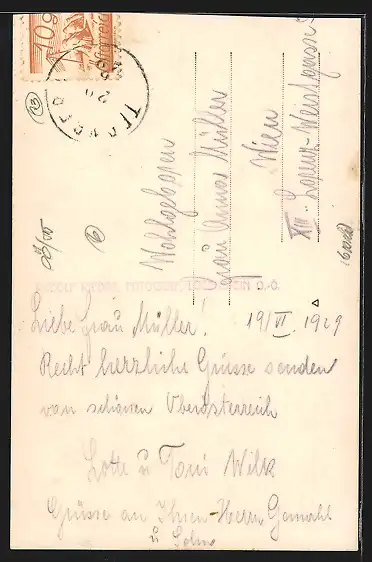 10g
Österreich
13
6
Wohlgeboren
Frau Anna Müller
Wien
XIII. Lorenz-Weiss-gasse 5
FOTOGRAF, O.-Ö.
Liebe Frau Müller!
19/VI. 1929
Recht herzliche Grüsse senden
von schönen Oberösterreich
Lotte u Toni Wilk
Grüsse an Ihren Herrn Gemahl
u Sohn